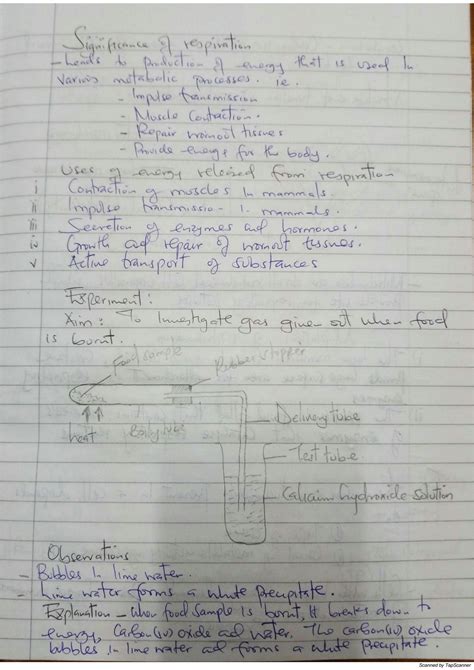 Significance of respiration
- Leads to production of energy that is used in
various metabolic processes. ie.
- Impulse transmission
- Muscle Contraction.
- Repair wornout tissues
- Provide energy for the body.
Uses of energy released from respiration
i Contraction of muscles in mammals.
ii Impulse transmission in mammals.
iii Secretion of enzymes and hormones.
iv Growth and repair of wornout tissues.
v Active transport of substances
Experiment:
Aim: To Investigate gas given out when food
is burnt.
Food sample
Rubber stopper
heat
Boiling tube
Delivery tube
Test tube
Calcium hydroxide solution
Observations
- Bubbles in lime water.
- Lime water forms a white precipitate.
Explanation - When food sample is burnt, it breaks down to
energy, Carbon(iv) oxide and water. The carbon(iv) oxide
bubbles in lime water and forms a white precipitate.
Scanned by TapScanner